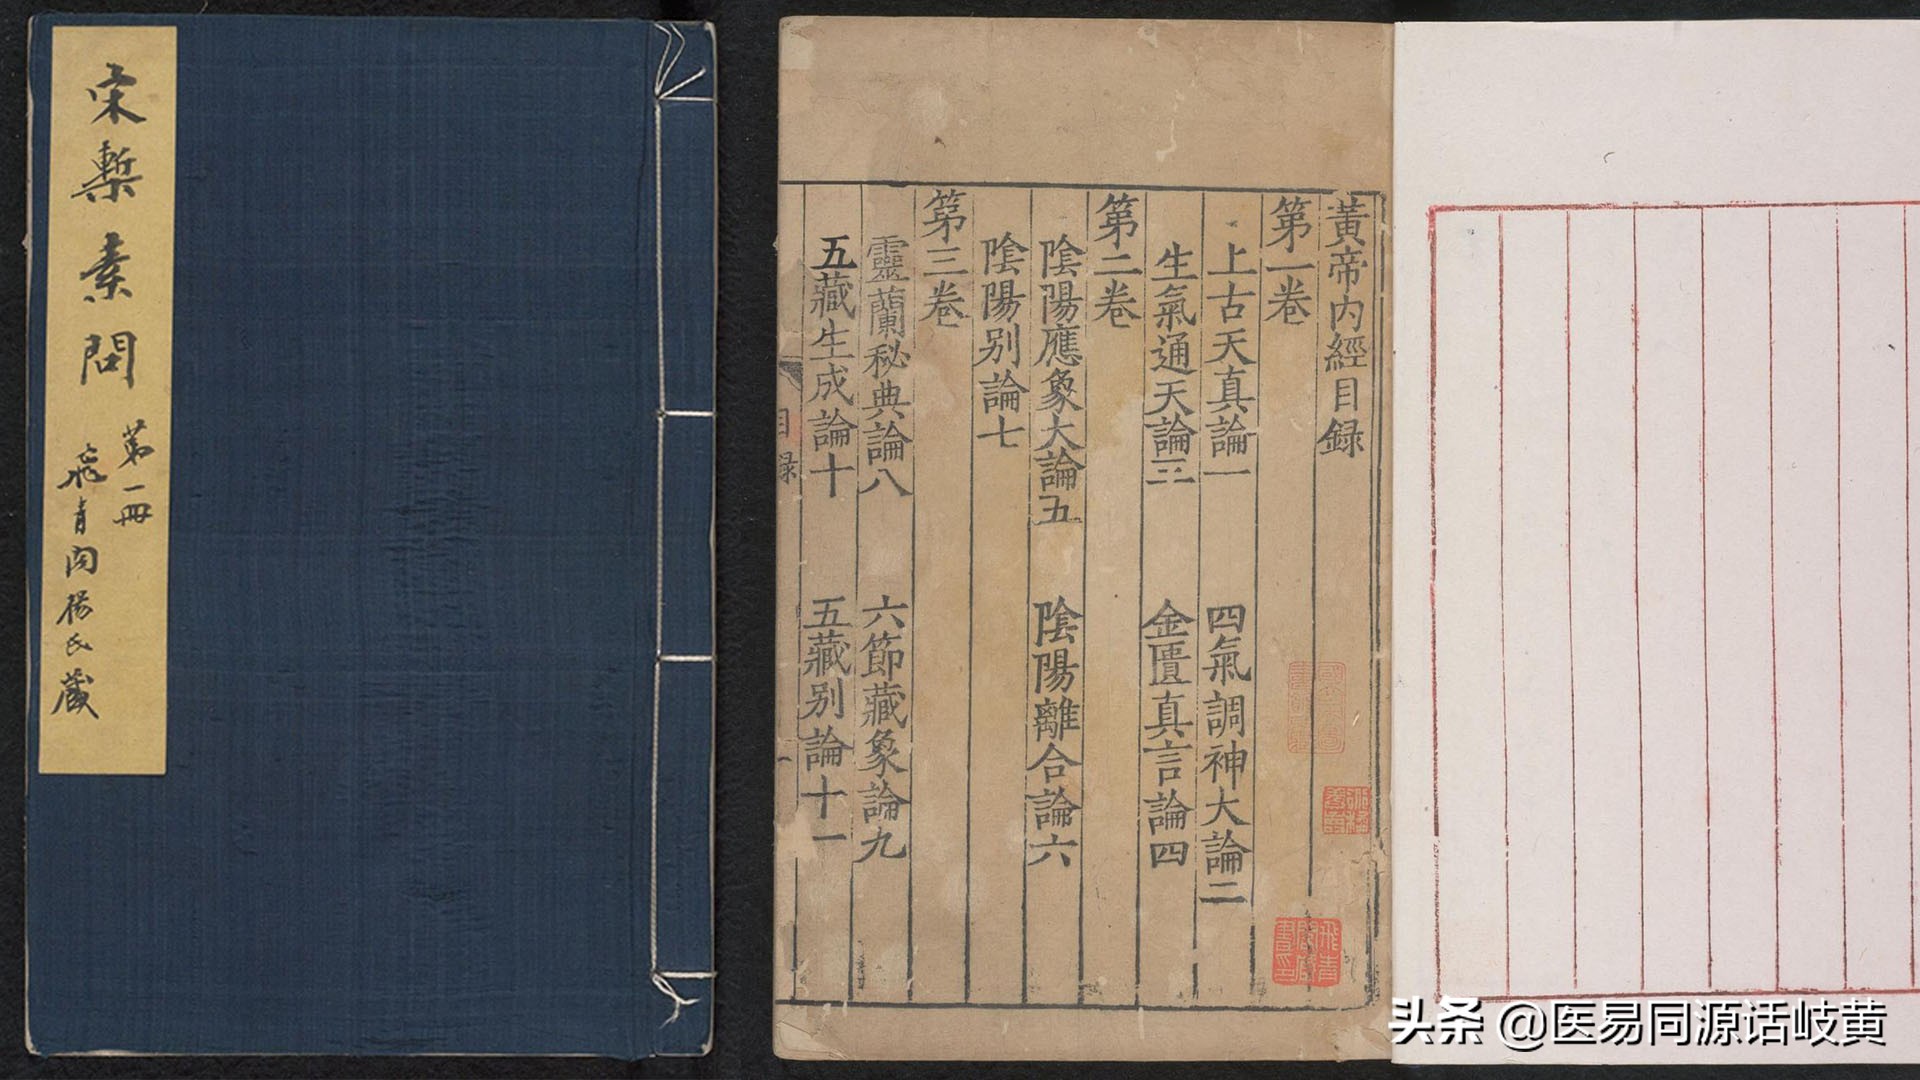 宋槧素問
第一冊
飛青閣楊氏藏
黃帝內經目録
第一卷
上古天真論一 四氣調神大論二
生氣通天論三 金匱真言論四
第二卷
陰陽應象大論五 陰陽離合論六
陰陽別論七
第三卷
靈蘭秘典論八 六節藏象論九
五藏生成論十 五藏別論十一
目録
頭条 @医易同源话岐黄